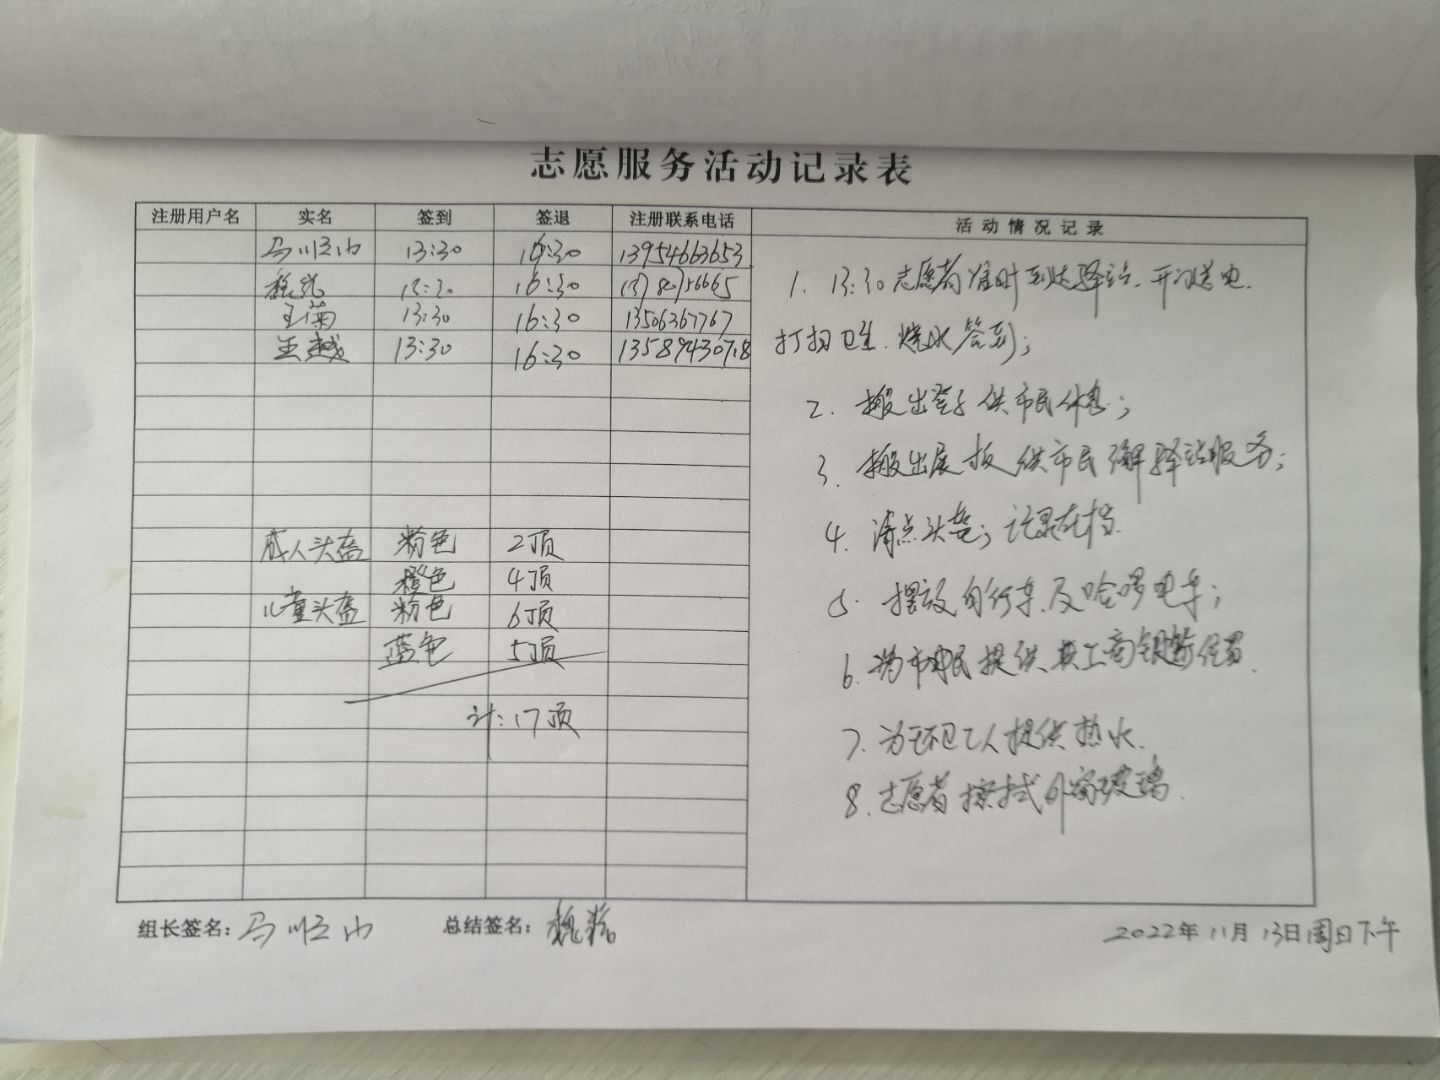 志愿服务活动记录表
注册用户名 实名 签到 签退 注册联系电话 活动情况记录
13:30 16:30 13954663653
16:30
王菊 13:30 16:30 13506367767
王越 13:30 16:30 13589430718
1. 13:30志愿者准时到达驿站、开门送电、
打扫卫生、烧水签到；
2. 搬出凳子供市民休息；
3. 搬出展板供市民了解驿站服务；
4. 清点头盔；记录在档.
5. 摆放自行车及哈啰电车；
6. 为市民提供
7. 为环卫工人提供热水.
8. 志愿者擦拭外窗玻璃.
成人头盔 粉色 2顶
橙色 4顶
儿童头盔 粉色 6顶
蓝色 5顶
计：17顶
组长签名： 总结签名： 2022年11月13日周日下午